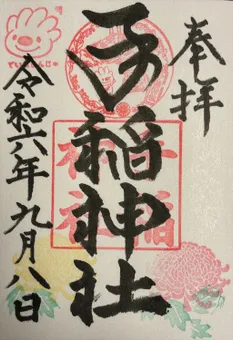 奉拝
手稲神社
令和六年九月八日